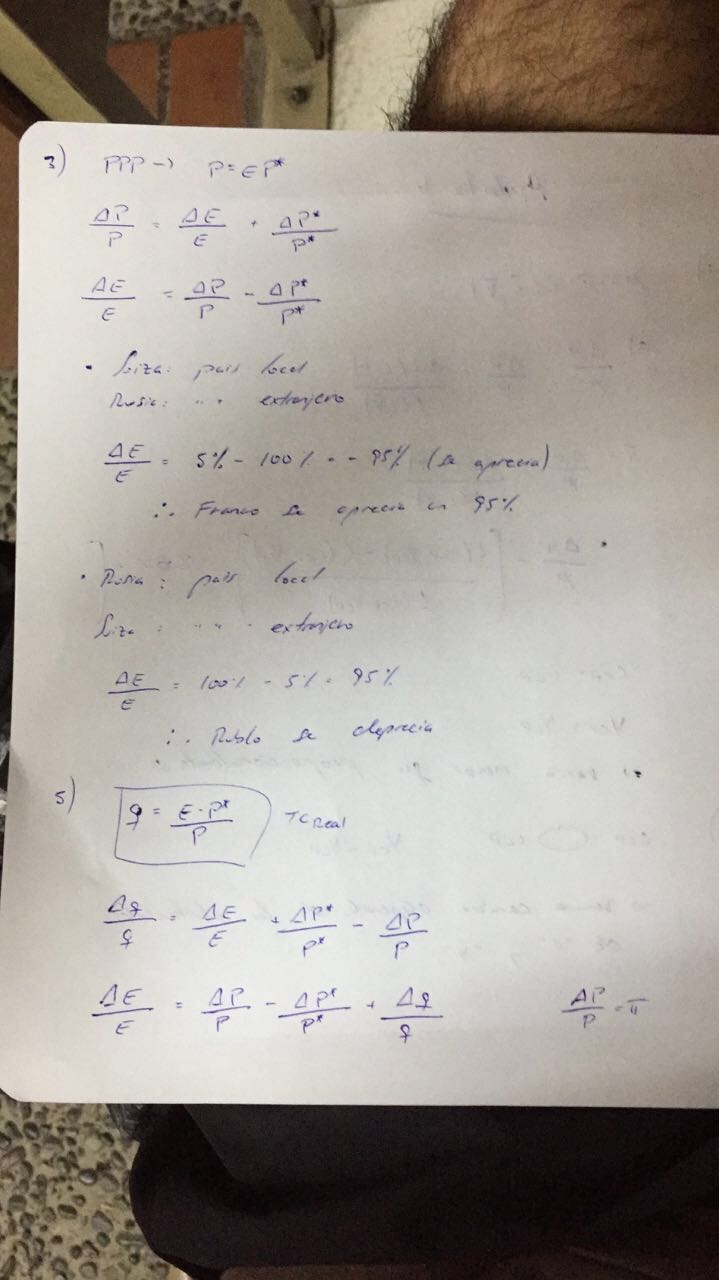 3) PPP → P = EP*
ΔP/P = ΔE/E + ΔP*/P*
ΔE/E = ΔP/P - ΔP*/P*
• Suiza: país local
Rusia: " " extranjero
ΔE/E = 5% - 100% = - 95% (Se aprecia)
∴ Franco se aprecia en 95%
• Rusia: país local
Suiza: " " extranjero
ΔE/E = 100% - 5% = 95%
∴ Rublo se deprecia
5) q = E·P*/P TC Real
Δq/q = ΔE/E + ΔP*/P* - ΔP/P
ΔE/E = ΔP/P - ΔP*/P* + Δq/q ΔP/P = π